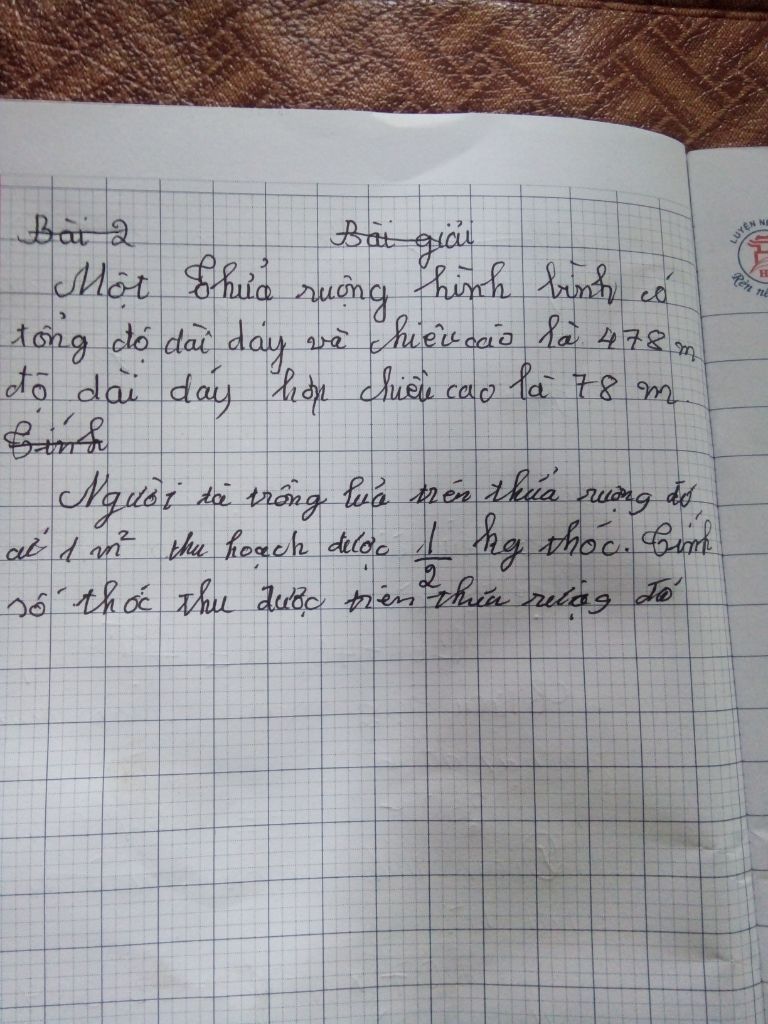 Bài 2 Bài giải
Một thửa ruộng hình bình có
tổng độ dài đáy và chiều cao là 478 m
độ dài đáy hơn chiều cao là 78 m
Tính
Người ta trồng luá trên thửa ruộng đó
cứ 1 m² thu hoạch được 1/2 kg thóc. Tính
số thóc thu được trên thửa ruộng đó
LUYỆN
Rèn